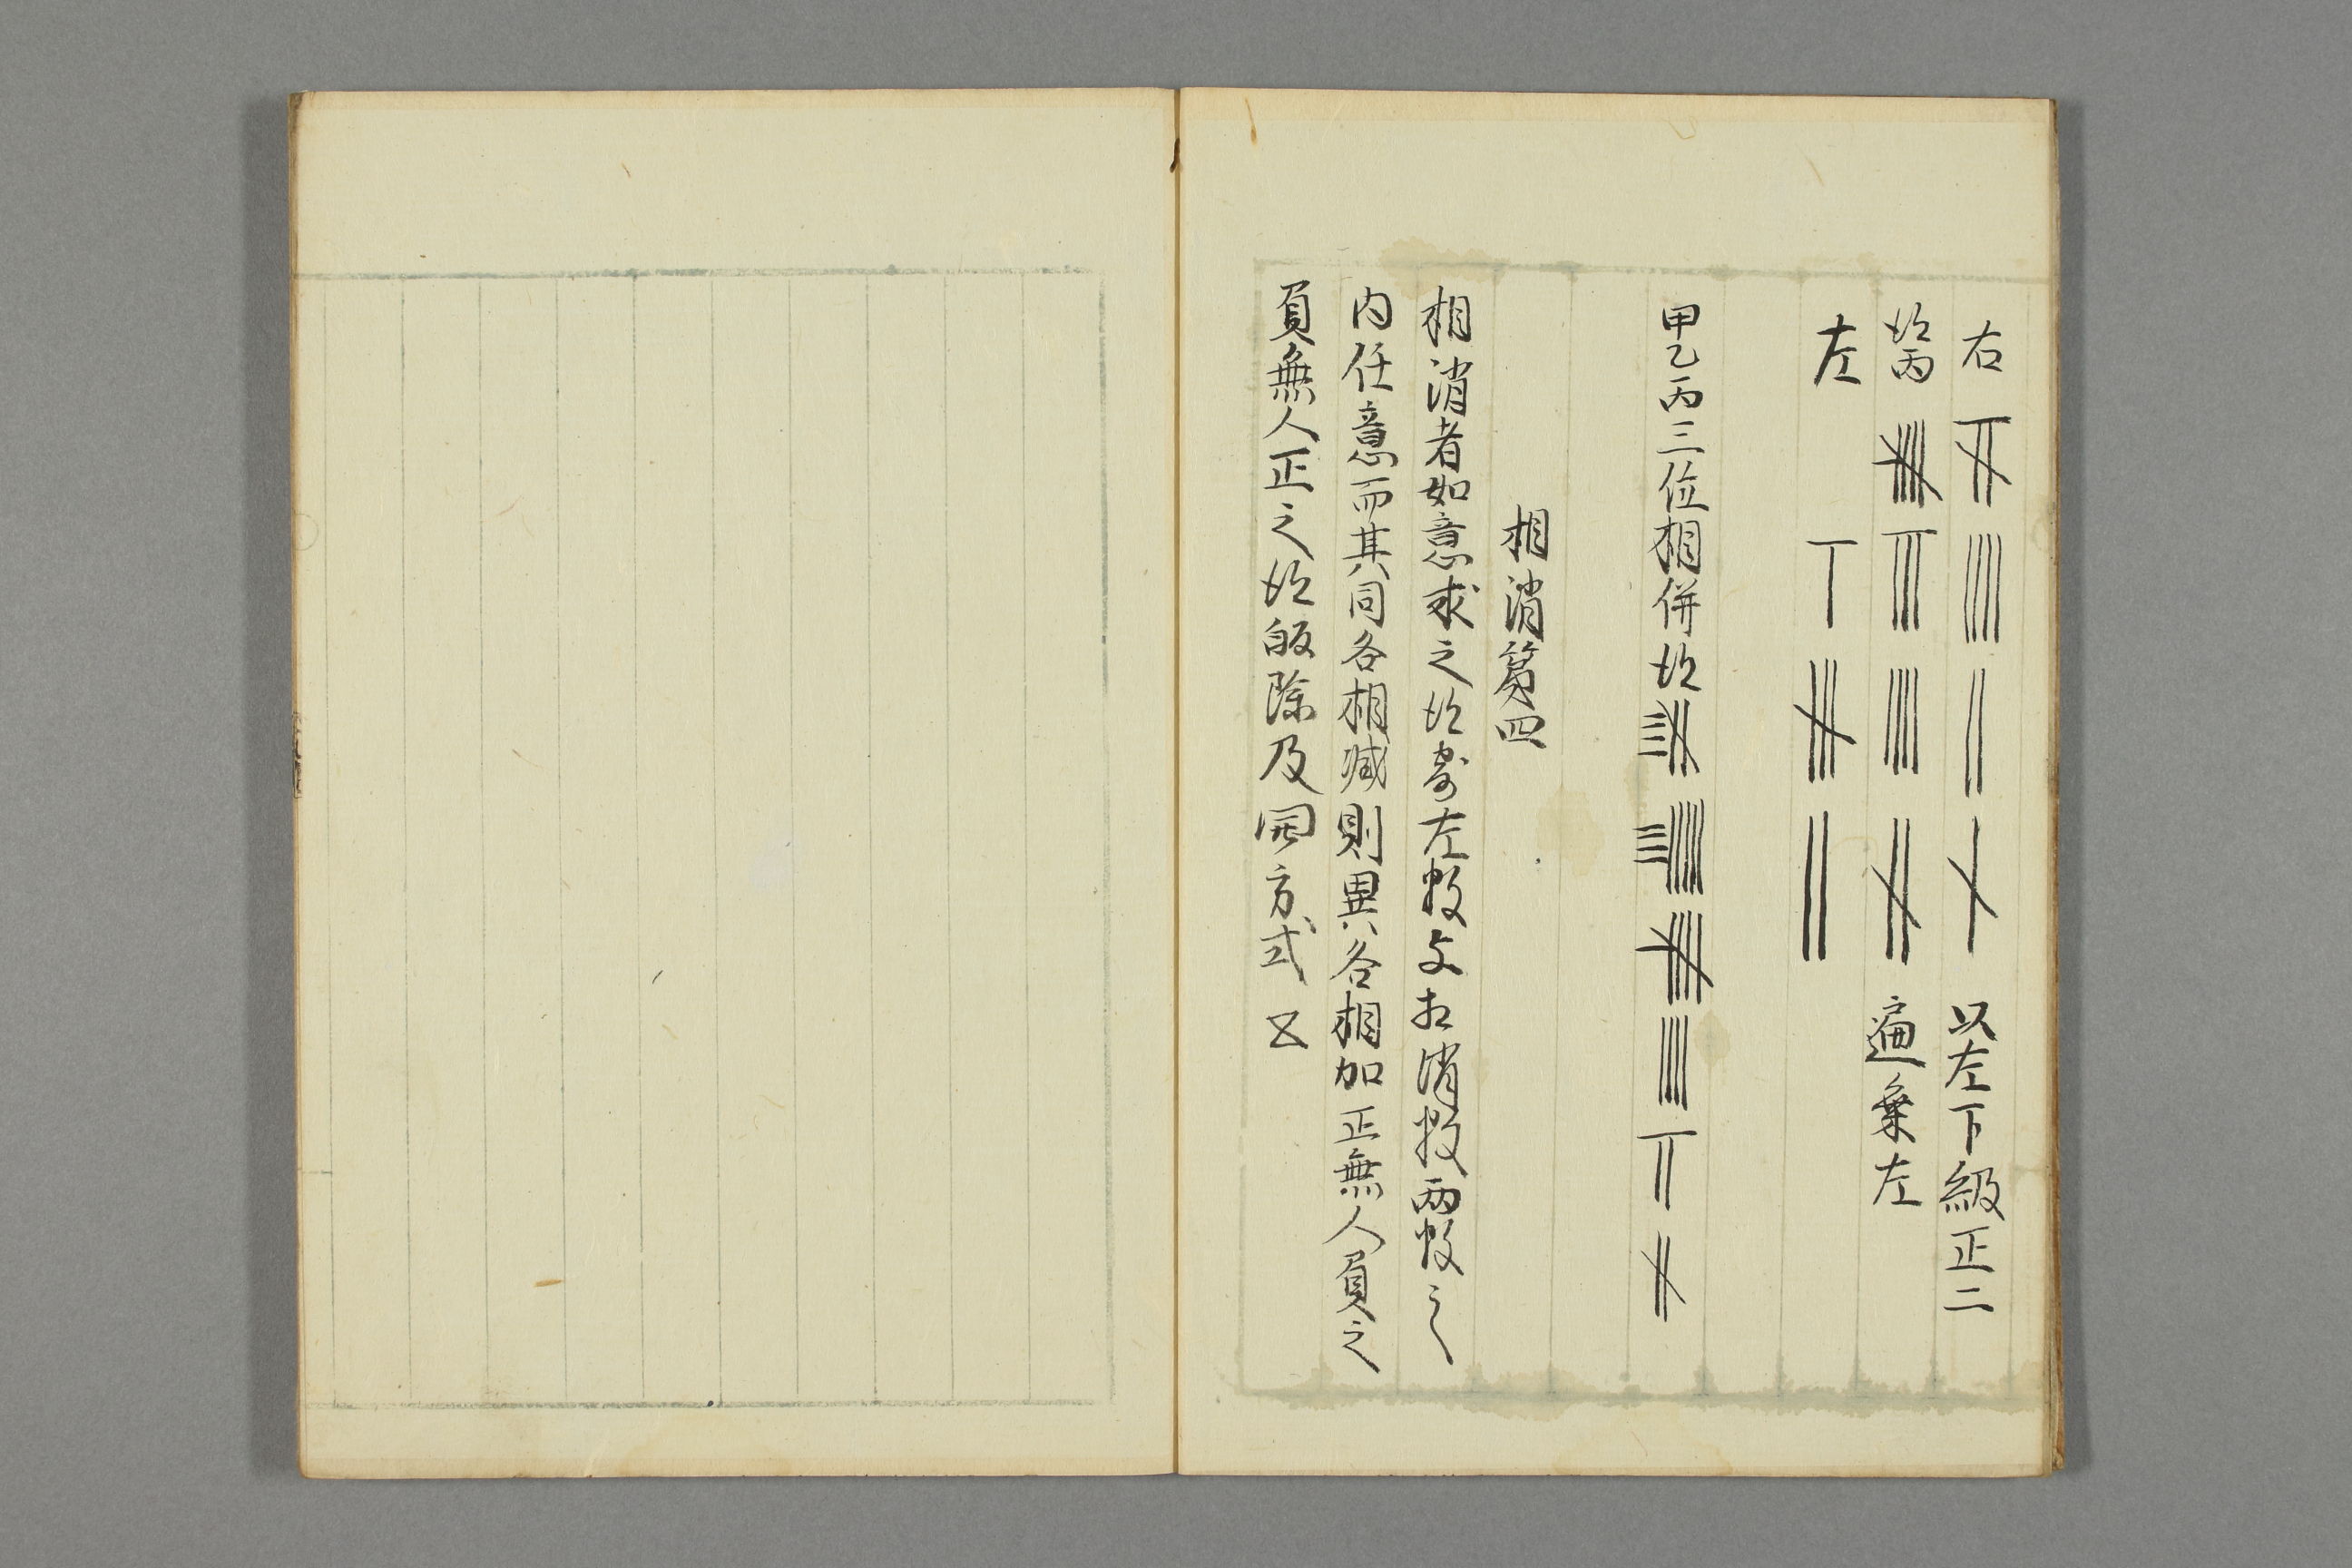 右 以左下級正二
得丙 遍乗左
左
甲乙丙三位相併得
相消第四
相消者如意求之得寄左数与相消数両数之
内任意而其同各相減則異各相加正無人負之
負無人正之得皈除及開方式